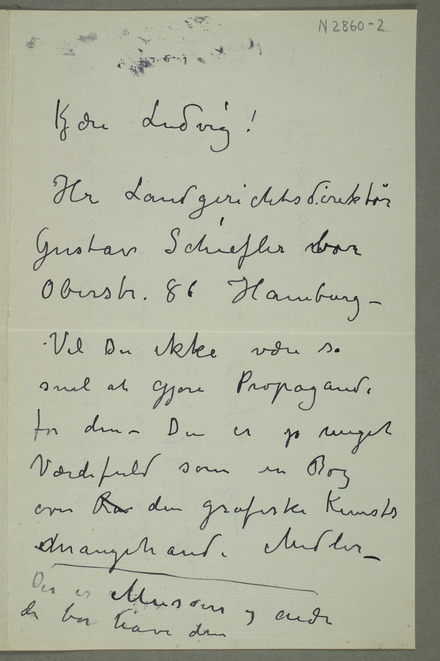 N 2860-2
Kjære Ludvig!
Hr Landgerichtsdirektør
Gustav Schiefler bor
Oberstr. 86 Hamburg –
Vil Du ikke være så
snil at gjøre Propaganda
for den – Den er jo meget
Værdifuld som en Bog
over den grafiske Kunsts
mangehande Midler –
Der er Museer og andre
der bør have den